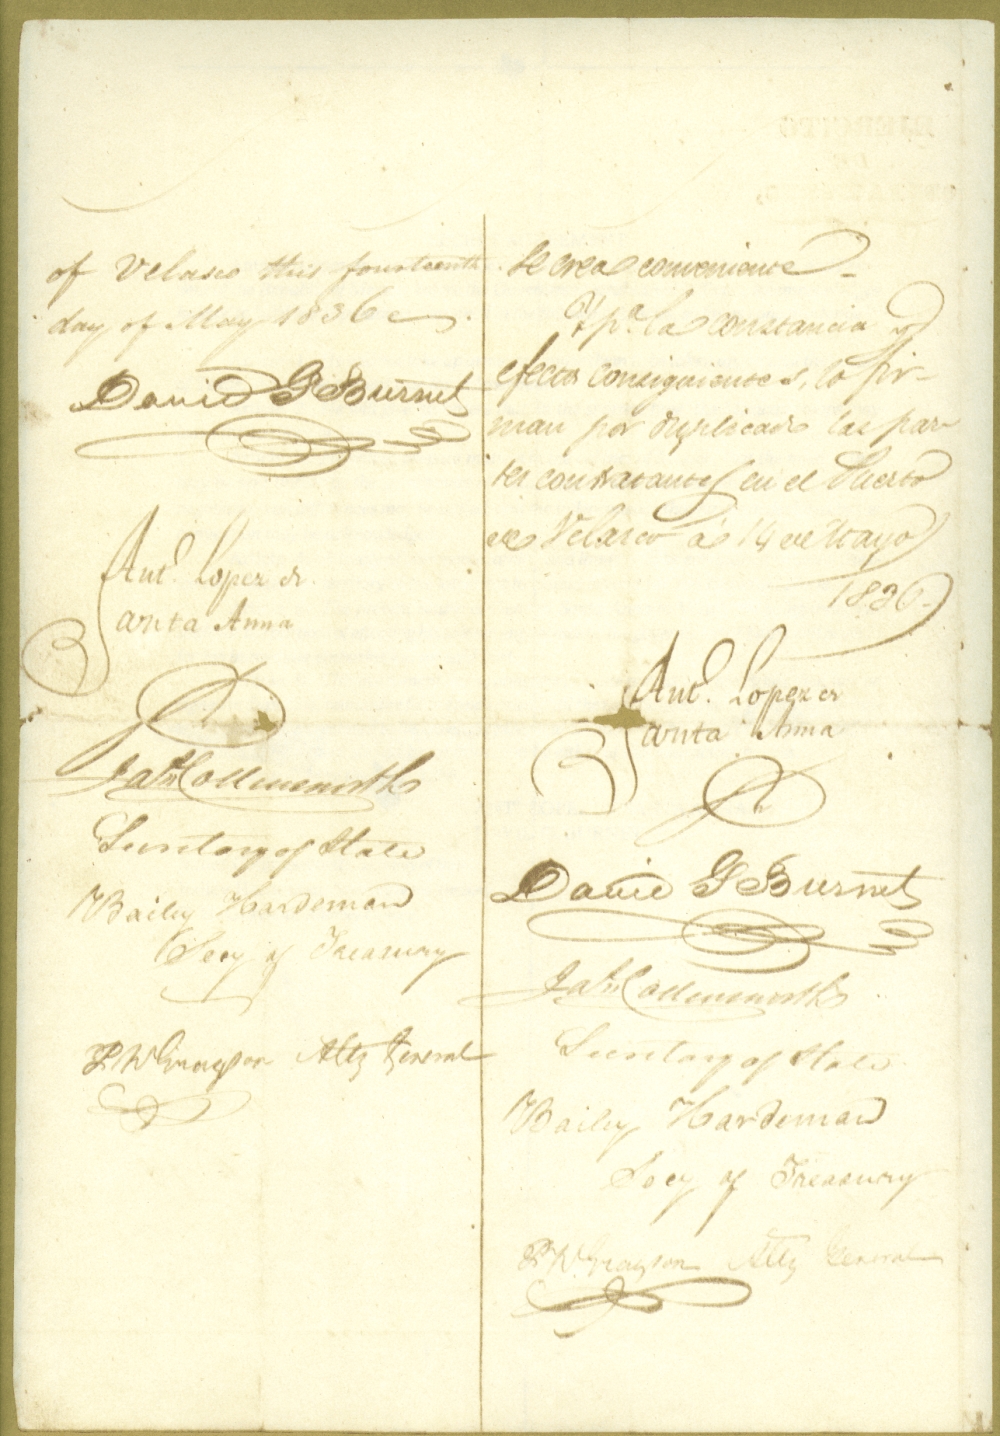 of Velasco this fourteenth
day of May 1836
David G Burnet
Ant.o Lopez de
Santa Anna
Jas Collinsworth
Secretary of State
Bailey Hardeman
Secy of Treasury
P W Grayson Atty General
se crea conveniente
Y pa. la constancia y
efectos consiguientes, lo fir-
man por duplicado las par-
tes contratantes en el Puerto
de Velasco á 14 de Mayo
1836.
Ant.o Lopez de
Santa Anna
David G Burnet
Jas Collinsworth
Secretary of State
Bailey Hardeman
Secy of Treasury
P W Grayson Atty General